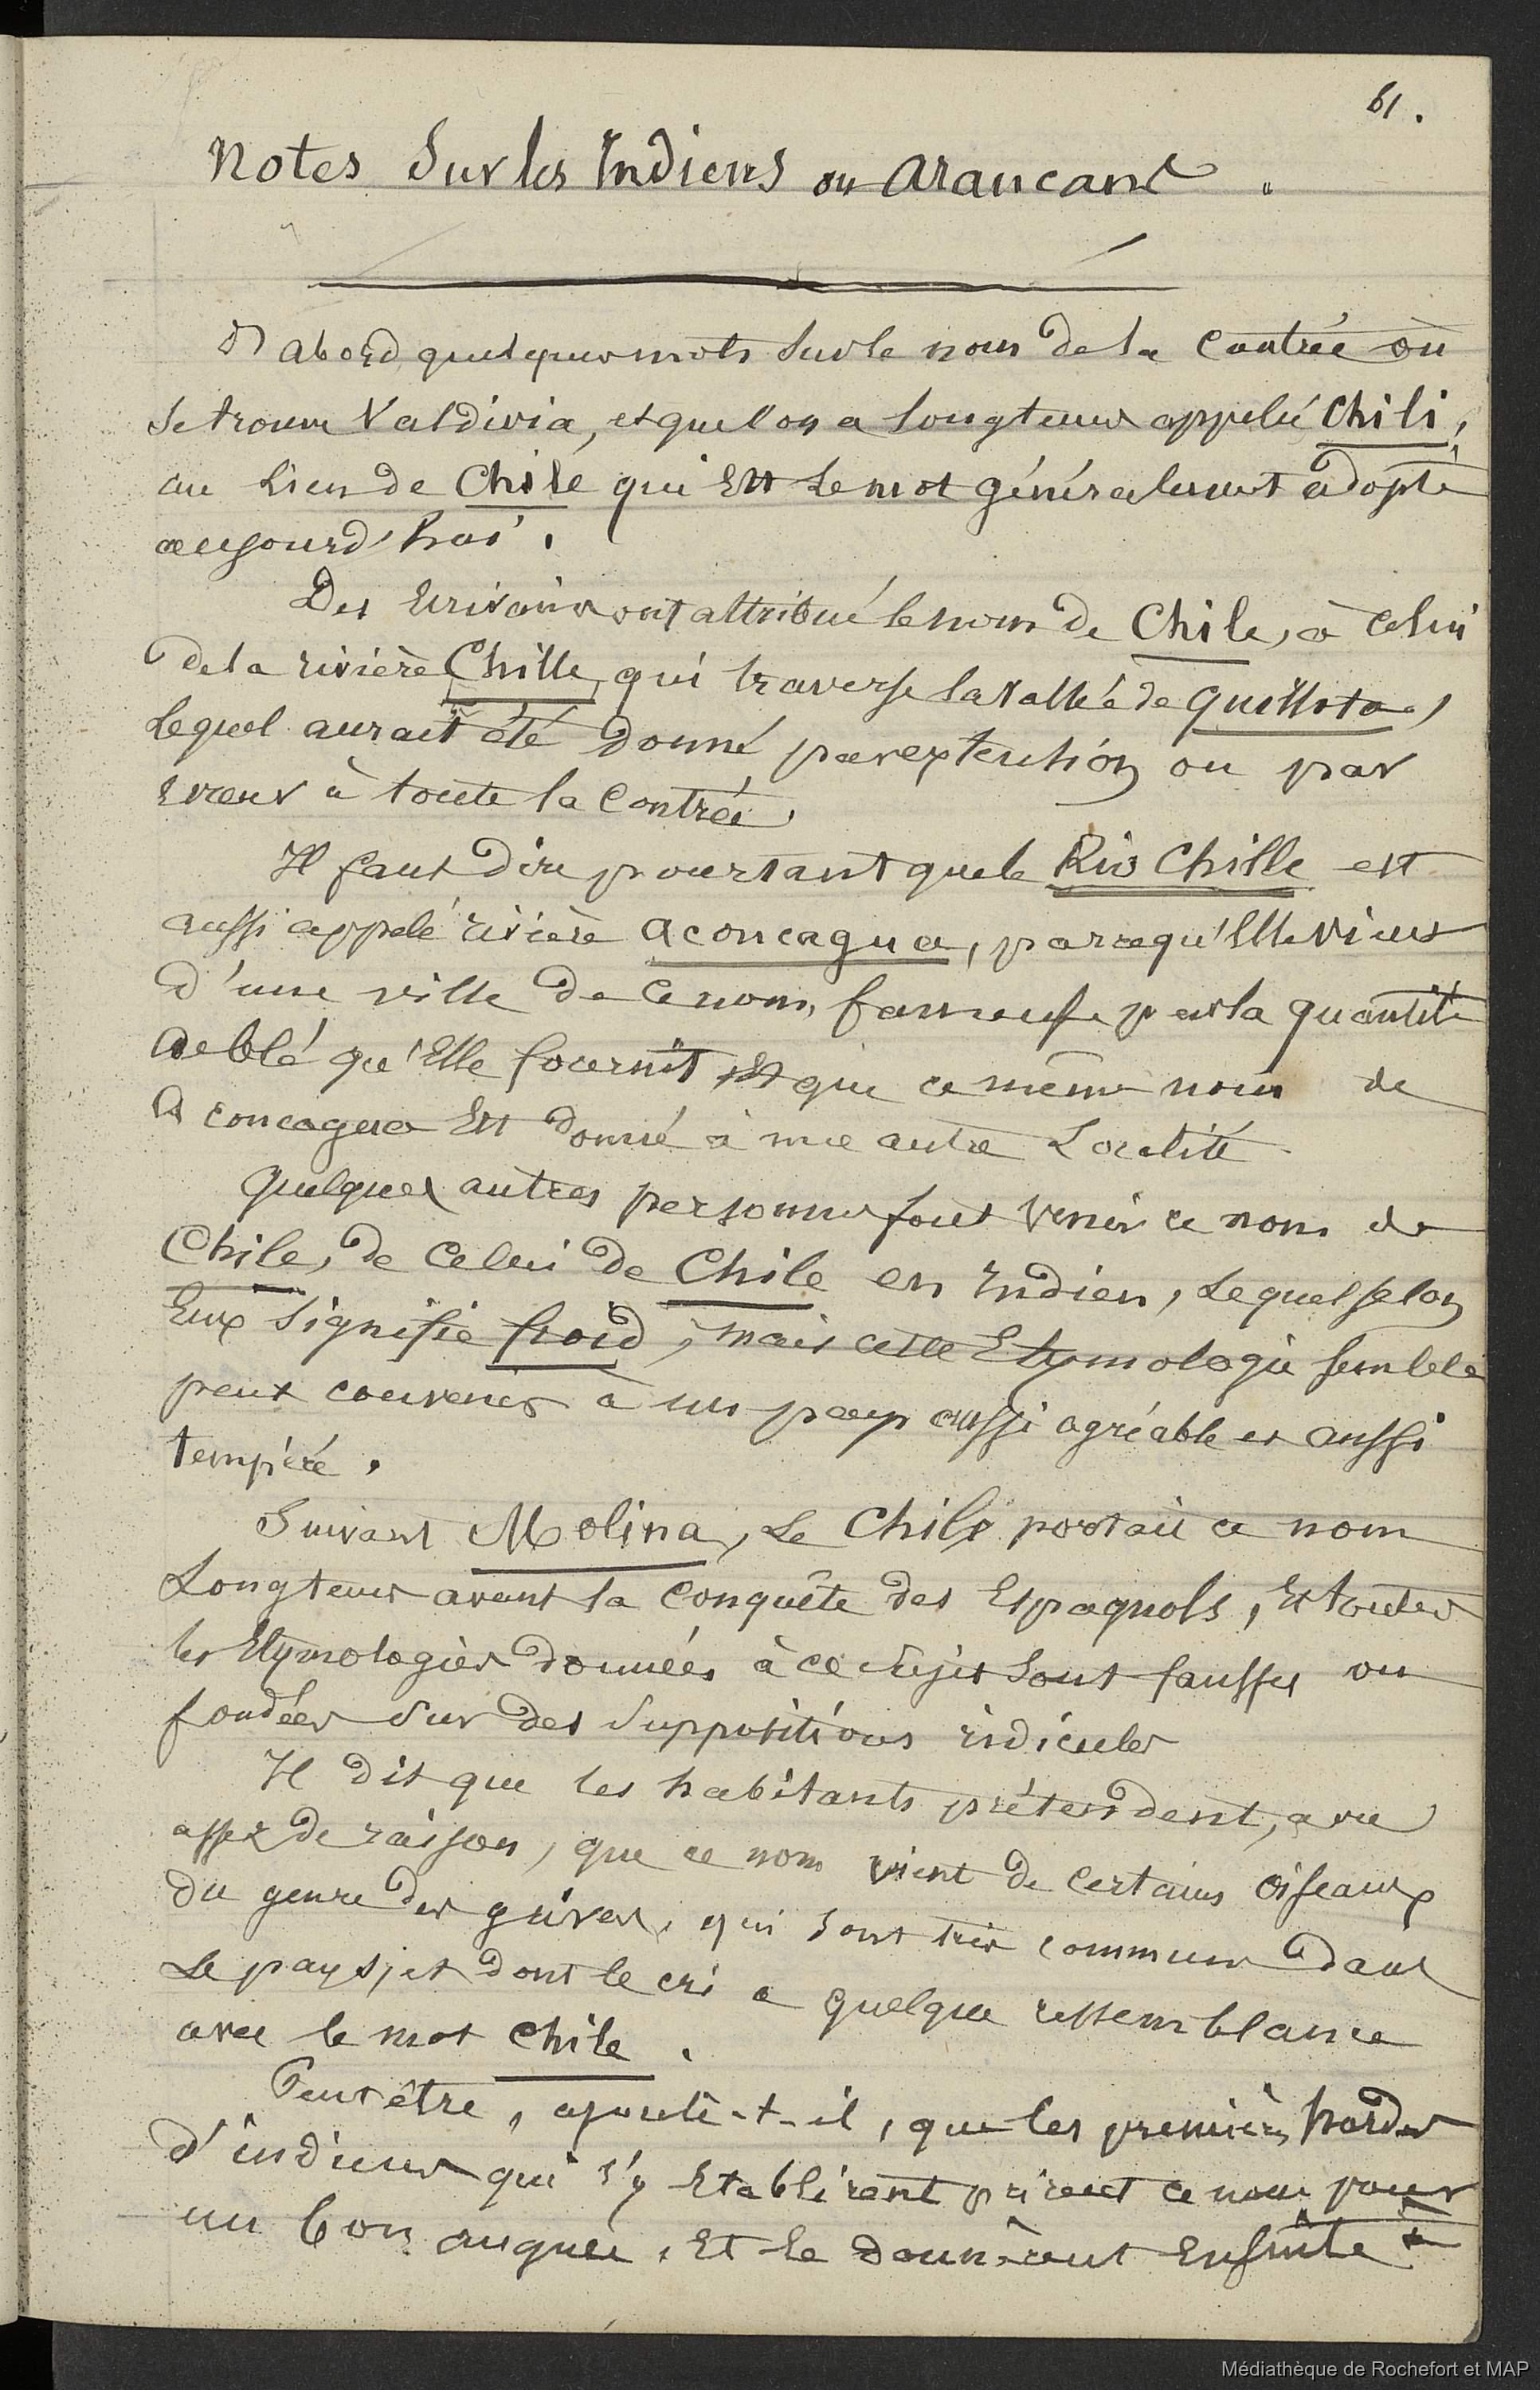 61.
Notes Sur les Indiens ou Araucans.
D'abord quelques mots sur le nom de la Contrée où
se trouve Valdivia, et que l'on a longtems appelée Chili,
au lieu de Chilé qui Est le mot généralement adopté
aujourd'hui.
Des Ecrivains ont attribué le nom de Chile, à celui
de la rivière Chille, qui traverse la Vallée de Quillota,
Lequel aurait été donné par extension ou par
erreur à toute la Contrée.
Il faut dire pourtant que le Rio Chille est
aussi appelé rivière Aconcagua, parcequ'Elle vient
d'une ville de ce nom, fameuse par la quantité
de blé qu'Elle fournit, Et que ce même nom de
Aconcagua Est donné à une autre Localité.
Quelques autres personnes font venir ce nom de
Chile, de celui de Chile en Indien, Lequel selon
Eux signifie froid, mais cette Etymologie semble
peut convenir à un pays aussi agréable et aussi
tempéré.
Suivant Molina, Le Chile portait ce nom
Longtems avant la Conquête des Espagnols, Et toutes
les Etymologies données à ce sujet sont fausses ou
fondées sur des suppositions ridicules
Il dit que les habitants prétendent, avec
assez de raison, que ce nom vient de certains oiseaux
du genre des grives, qui sont très communs dans
Le pays, et dont le cri a quelque ressemblance
avec le mot Chile.
Peut être, ajoute-t-il, que les premières hordes
d'indiens qui s'y Etablirent prirent ce nom pour
un bon augure, Et le donnèrent Ensuite à
Médiathèque de Rochefort et MAP